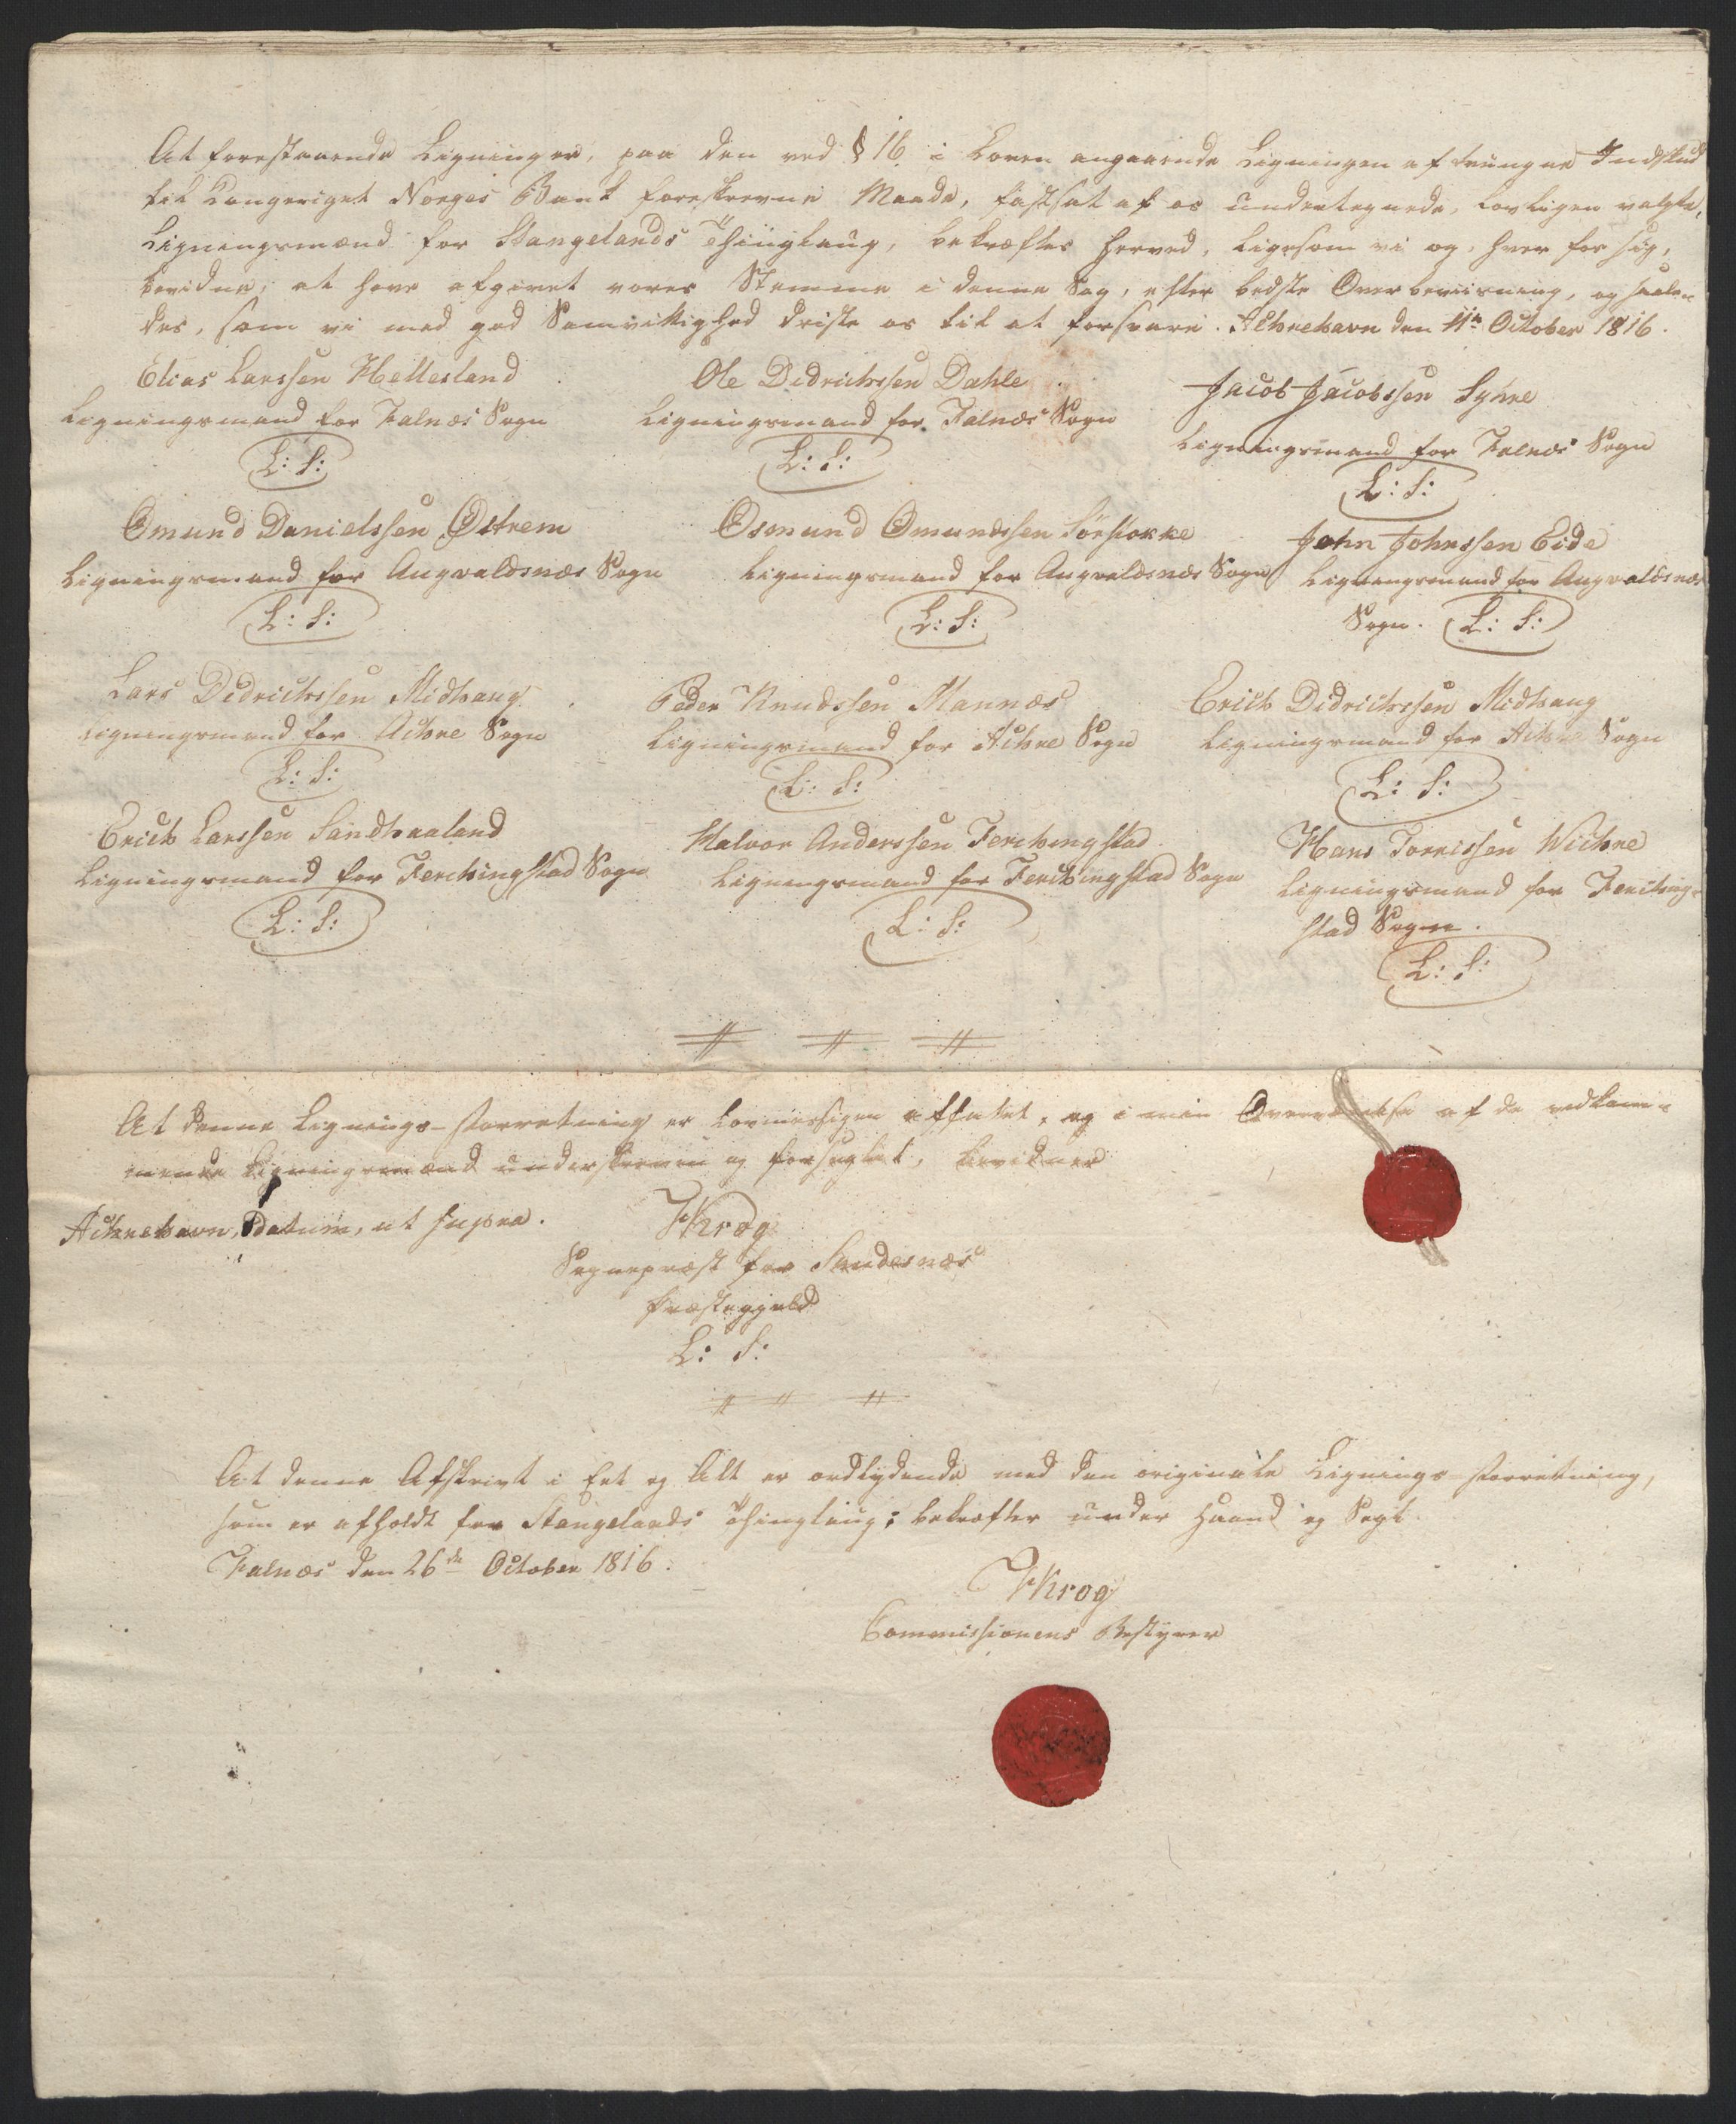 At forestaaende Ligninger, paa den ved § 16 i Loven angaaende Ligningen af tvungne Indskud
til Kongeriget Norges Bank foreskrevne Maade, fastsat af os undertegnede, lovligen valgte,
Ligningsmænd for Stangelands Thinglaug, bekræftes herved, ligesom vi og, hver for sig,
bevidne, at have afgivet vores Stemme i denne Sag, efter bedste Overbeviisning, og saale-
des, som vi med god Samvittighed driste os til at forsvare. Achrehavn den 11te October 1816.
Elias Larssen Hellesland
Ligningsmand for Falnæs Sogn
L: S:
Ole Didrichssen Dahle
Ligningsmand for Falnæs Sogn
L: S:
Jacob Jacobssen Syhre
Ligningsmand for Falnæs Sogn
L: S:
Omund Danielssen Østrem
Ligningsmand for Augvaldsnæs Sogn
L: S:
Osmund Omundssen Sørstokke
Ligningsmand for Augvaldsnæs Sogn
L: S:
John Johnssen Eide
Ligningsmand for Augvaldsnæs
Sogn. L: S:
Lars Didrichssen Midhaug
Ligningsmand for Achre Sogn
L: S:
Peder Knudssen Mannæs
Ligningsmand for Achre Sogn
L: S:
Erich Didrichssen Midhaug
Ligningsmand for Achre Sogn
L: S:
Erich Larssen Sandhaaland
Ligningsmand for Ferchingstad Sogn
L: S:
Halvor Anderssen Ferchingstad
Ligningsmand for Ferchingstad Sogn
L: S:
Hans Torrissen Wichre
Ligningsmand for Ferching-
stad Sogn.
L: S:
At denne Lignings-Forretning er lovmæssigen affattet, og i min Overværelse af de vedkom-
mende Ligningsmænd underskreven og forseglet, bevidner
Achrehavn, Datum, ut supra.
FKrog
Sognepræst for Skudesnæs
Præstegjeld
L: S:
At denne Afskrivt i Eet og Alt er ordlydende med den originale Lignings-Forretning,
som er afholdt for Stangelands Thinglaug; bekræfter under Haand og Segl.
Falnæs den 26de October 1816.
FKrog
Commissionens Bestyrer